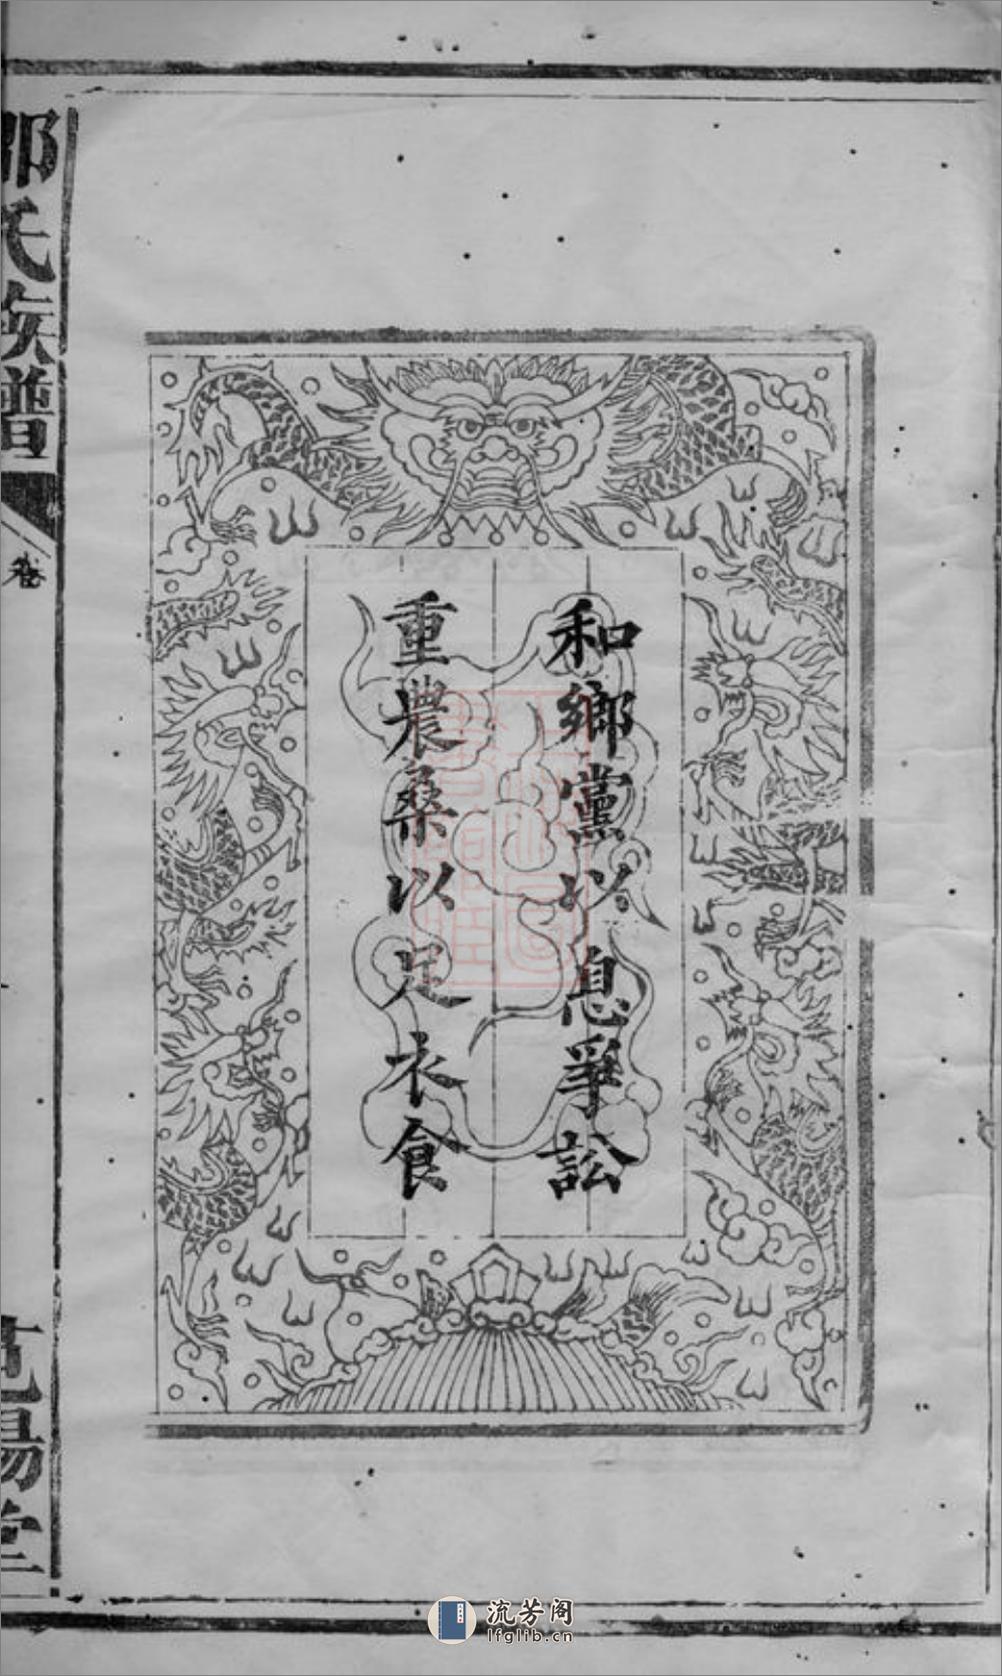 和鄉黨以息爭訟
重農桑以足衣食
氏族譜
卷
陽堂
流芳阁
lfglib.cn